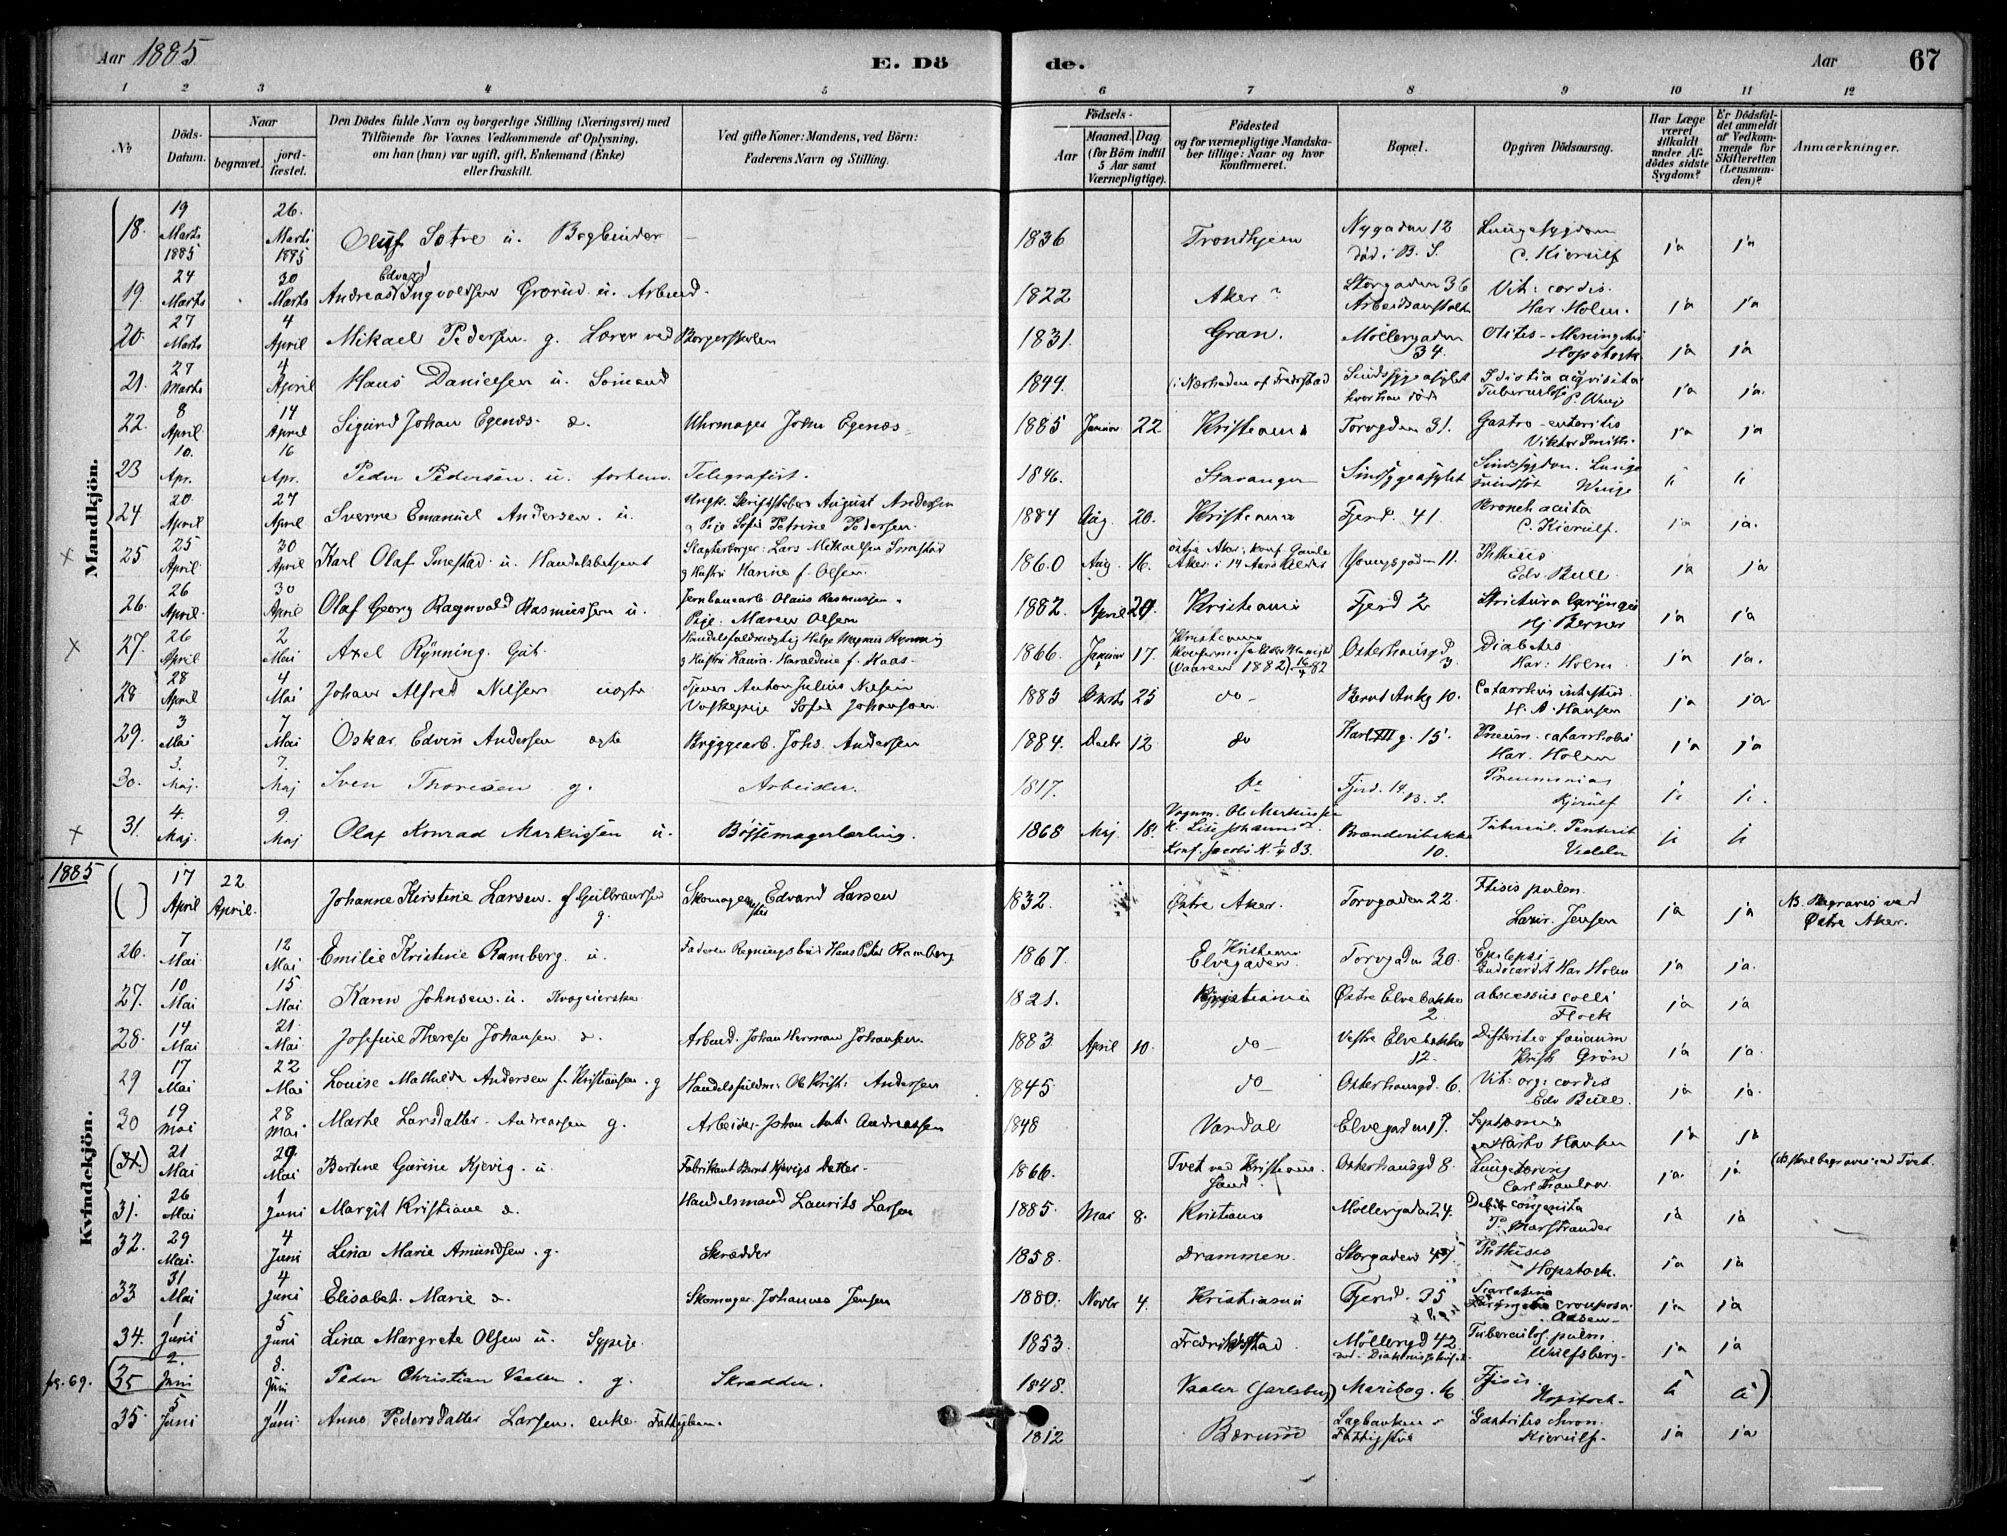 Aar 1885 E. Dö de. Aar 67
1 2 3 4 5 6 7 8 9 10 11 12
No
Döds-Datum.
Naar
begravet.
jordfæstet.
Den Dödes fulde Navn og borgerlige Stilling (Næringsvei) med
Tilföiende for Voxnes Vedkommende af Oplysning,
om han (hun) var ugift, gift, Enkemand (Enke)
eller fraskilt.
Ved gifte Koner: Mandens, ved Börn:
Faderens Navn og Stilling.
Födsels-
Aar
Maaned. Dag
(for Börn indtil
5 Aar samt
Værnepligtige).
Födested
og for værnepligtige Mandskaber tillige: Naar og hvor
konfirmeret.
Bopæl.
Opgiven Dödsaarsag.
Har Læge
været
tilkaldt
under Afdödes sidste
Sygdom?
Er Dödsfaldet anmeldt
af Vedkommende for
Skifteretten
(Lensmanden)?
Anmærkninger.
Mandkjön.
18. 19 Marts 1885 26. Marts 1885 Oluf Sætre u. Bogbinder 1836 Trondhjem Nygaden 12 død i B. S. Lungesygdom C. Kierulf ja ja
19. 24 Marts 30 Marts Andreas Edvard Ingvoldsen Grorud u. Arbeid. 1822 Aker Storgaden 36 Arbeidsanstalten Vit: cordis. Har Holm. ja ja
20. 27 Marts 4 April Mikael Pedersen g. Lærer ved Borgerskolen 1831. Gran. Møllergaden 34. Otites - Meningitis Hopstock ja ja
21. 27 Marts 4 April Hans Danielsen u. Sømand 1844. i Nærheden af Fredrstad Sindssygeasylet hvor han døde Idiotia acqvisita Tuberculose P. Winge ja ja.
22. 8 April 14 April Sigurd Johan Egenæs. d. Uhrmager John Egenæs 1885 Januar 22 Kristiania Torvgden 31. Gastro-enteritis Viktor Smith. ja ja
23 10. Apr. 16 Apr. Peder Pedersen. u. forhenv. Telegrafist. 1846. Stavanger Sindssygeasylet Sindssygdom. Lunge Winge
24 20 April 27 April Sverre Emanuel Andersen. u. August Andersen Pige Sofie Petrine Pedersen. 1884 Aug. 20. Kristiania Fjerd. 41. Bronch acuta C. Kierulf. ja ja.
x 25 25 April 30 April Karl Olaf Smestad. u. Handelsbetjent Slagterborger: Lars Mikaelsen Smestad g Hustru Karine f. Olsen. 1860 Aug. 16. Østre Aker: konf. Gamle Aker i 14 Aars Alder Youngsgaden 11. Phthisis Edv. Bull. ja ja
26. 26 April. 30 April Olaf Georg Ragnvald Rasmussen u. Jernbanearb. Olaus Rasmussen Pige. Maren Olsen 1882. April 29. Kristiania Fjerd 2 Strictura laryngis Hj Berner ja ja
x 27. 26 April 2 Mai Axel Rynning. Gut. Helge Magnus Rynning g Hustru Laura Haraldine f. Haas. 1866 Januar 17. Kristiania (Vaaren 1882) 16/4 82 Osterhausgd 3. Diabetes Har: Holm. ja ja.
28 28 April 4 Mai Johan Alfred Nilsen uægte Tjener Anton Julius Nilsen Vaskepige Sofie Johansen. 1883 25 do Bernt Ankg 10. Catarrhus intestin. H. A. Hansen ja ja
29. 3 Mai 7 Mai Oskar Edvin Andersen ægte Bryggearb. Johs. Andersen 1884. Decbr 12 do Karl XII g. 15. Pneum. catarrhalis Har. Holm ja ja
30. 3. Maj. 7. Maj Sven Thoresen g. Arbeider. 1817. Fjerd. 14. B. S. Pneumonia Kjerulf
x 31. 4. Maj. 9. Maj Olaf Konrad Markussen u. Bøssemagerlærling. 1868 Maj. 18. Vognm. Ole Markussen Lise Johanne Konf. Jacobs K. 1/4 83. Brænderibakken 10.
1885
Kvindekjön.
( ) 17 April 22 April. Johanne Kirstine Larsen. f Gulbrandsen g. Skomager Edvard Larsen 1832. Østre Aker. Torvgaden 22. Ftisis pulm. Laur. Jensen ja ja NB. Begraves ved Østre Aker.
26. 7 Mai 12 Mai Emilie Kristine Ramberg. u. Faderen Regningsbud Hans Peter Ramberg 1867. Kristiania Elvegaden. Torvgaden 30. Epilepsi Endocardit Har Holm ja ja.
27. 10 Mai 15 Mai Karen Johnsen. u. 1821. Kristiania Østre Elvebakke 2. abscessus colli Flock ja ja
28. 14 Mai 21. Mai Josefine Therese Johansen d. Arbeid. Johan Herman Johansen. 1883 April 10. do Vestre Elvebakke 12. Difterites faucium Krist. Grøn ja ja
29 17 Mai 22 Mai Louise Mathilde Andersen f. Kristiansen. g Handelsfuldm: Ole Krist: Andersen 1845 do Osterhausgd. 6. Vit: org: cordis Edv Bull. ja ja.
30 19 Mai 28 Mai Marthe Larsdatter. Andreassen g. Arbeider. Johan Ant: Andreassen 1848 Vardal Elvegaden 17. Hansen ja ja
(31.) 21 Mai 29 Mai Bertine Gurine Kjevig. u. Fabrikant Bernt Kjevigs Datter. 1866. Tvet ved Kristiansand. Osterhausgd 8. ja. ja NB skal begraves ved Tvet.
31. 26 Mai 1 Juni Margit Kristiane d. Handelsmand Laurits Larsen 1885. Mai 8. Kristiania Møllergaden 24. Debil: congenita P. Marstrander ja ja
32. 29 Mai. 4 Juni Lina Marie Amundsen. g. Skrædder 1858. Drammen. Storgaden 47 Phthisis Hopstock. ja ja
33 31 Mai 4 Juni Elisabet Marie d. Skomager. Johannes Jensen 1880. Novbr 4. Kristiania Fjerd. 35 Scarlatina crouposa ja ja
34. 1 Juni 5 Juni Lina Margrete Olsen u. Sypige. 1853. Fredrikstad Møllergd 42 Tuberculos. pulm. Wulfsberg. ja ja
fol. 69. (35 2. Juni 8. Juni Peder Christian Vaaler. g. Skrædder. 1848. Vaaler (Jarlsberg) Maribog. 6 Ftisis. Hopstock.
35. 5 Juni 11 Juni. Anne Pedersdatter Larsen. enke. Fattiglem. 1812 Bærum Gastritis chron. Kierulf. ja ja